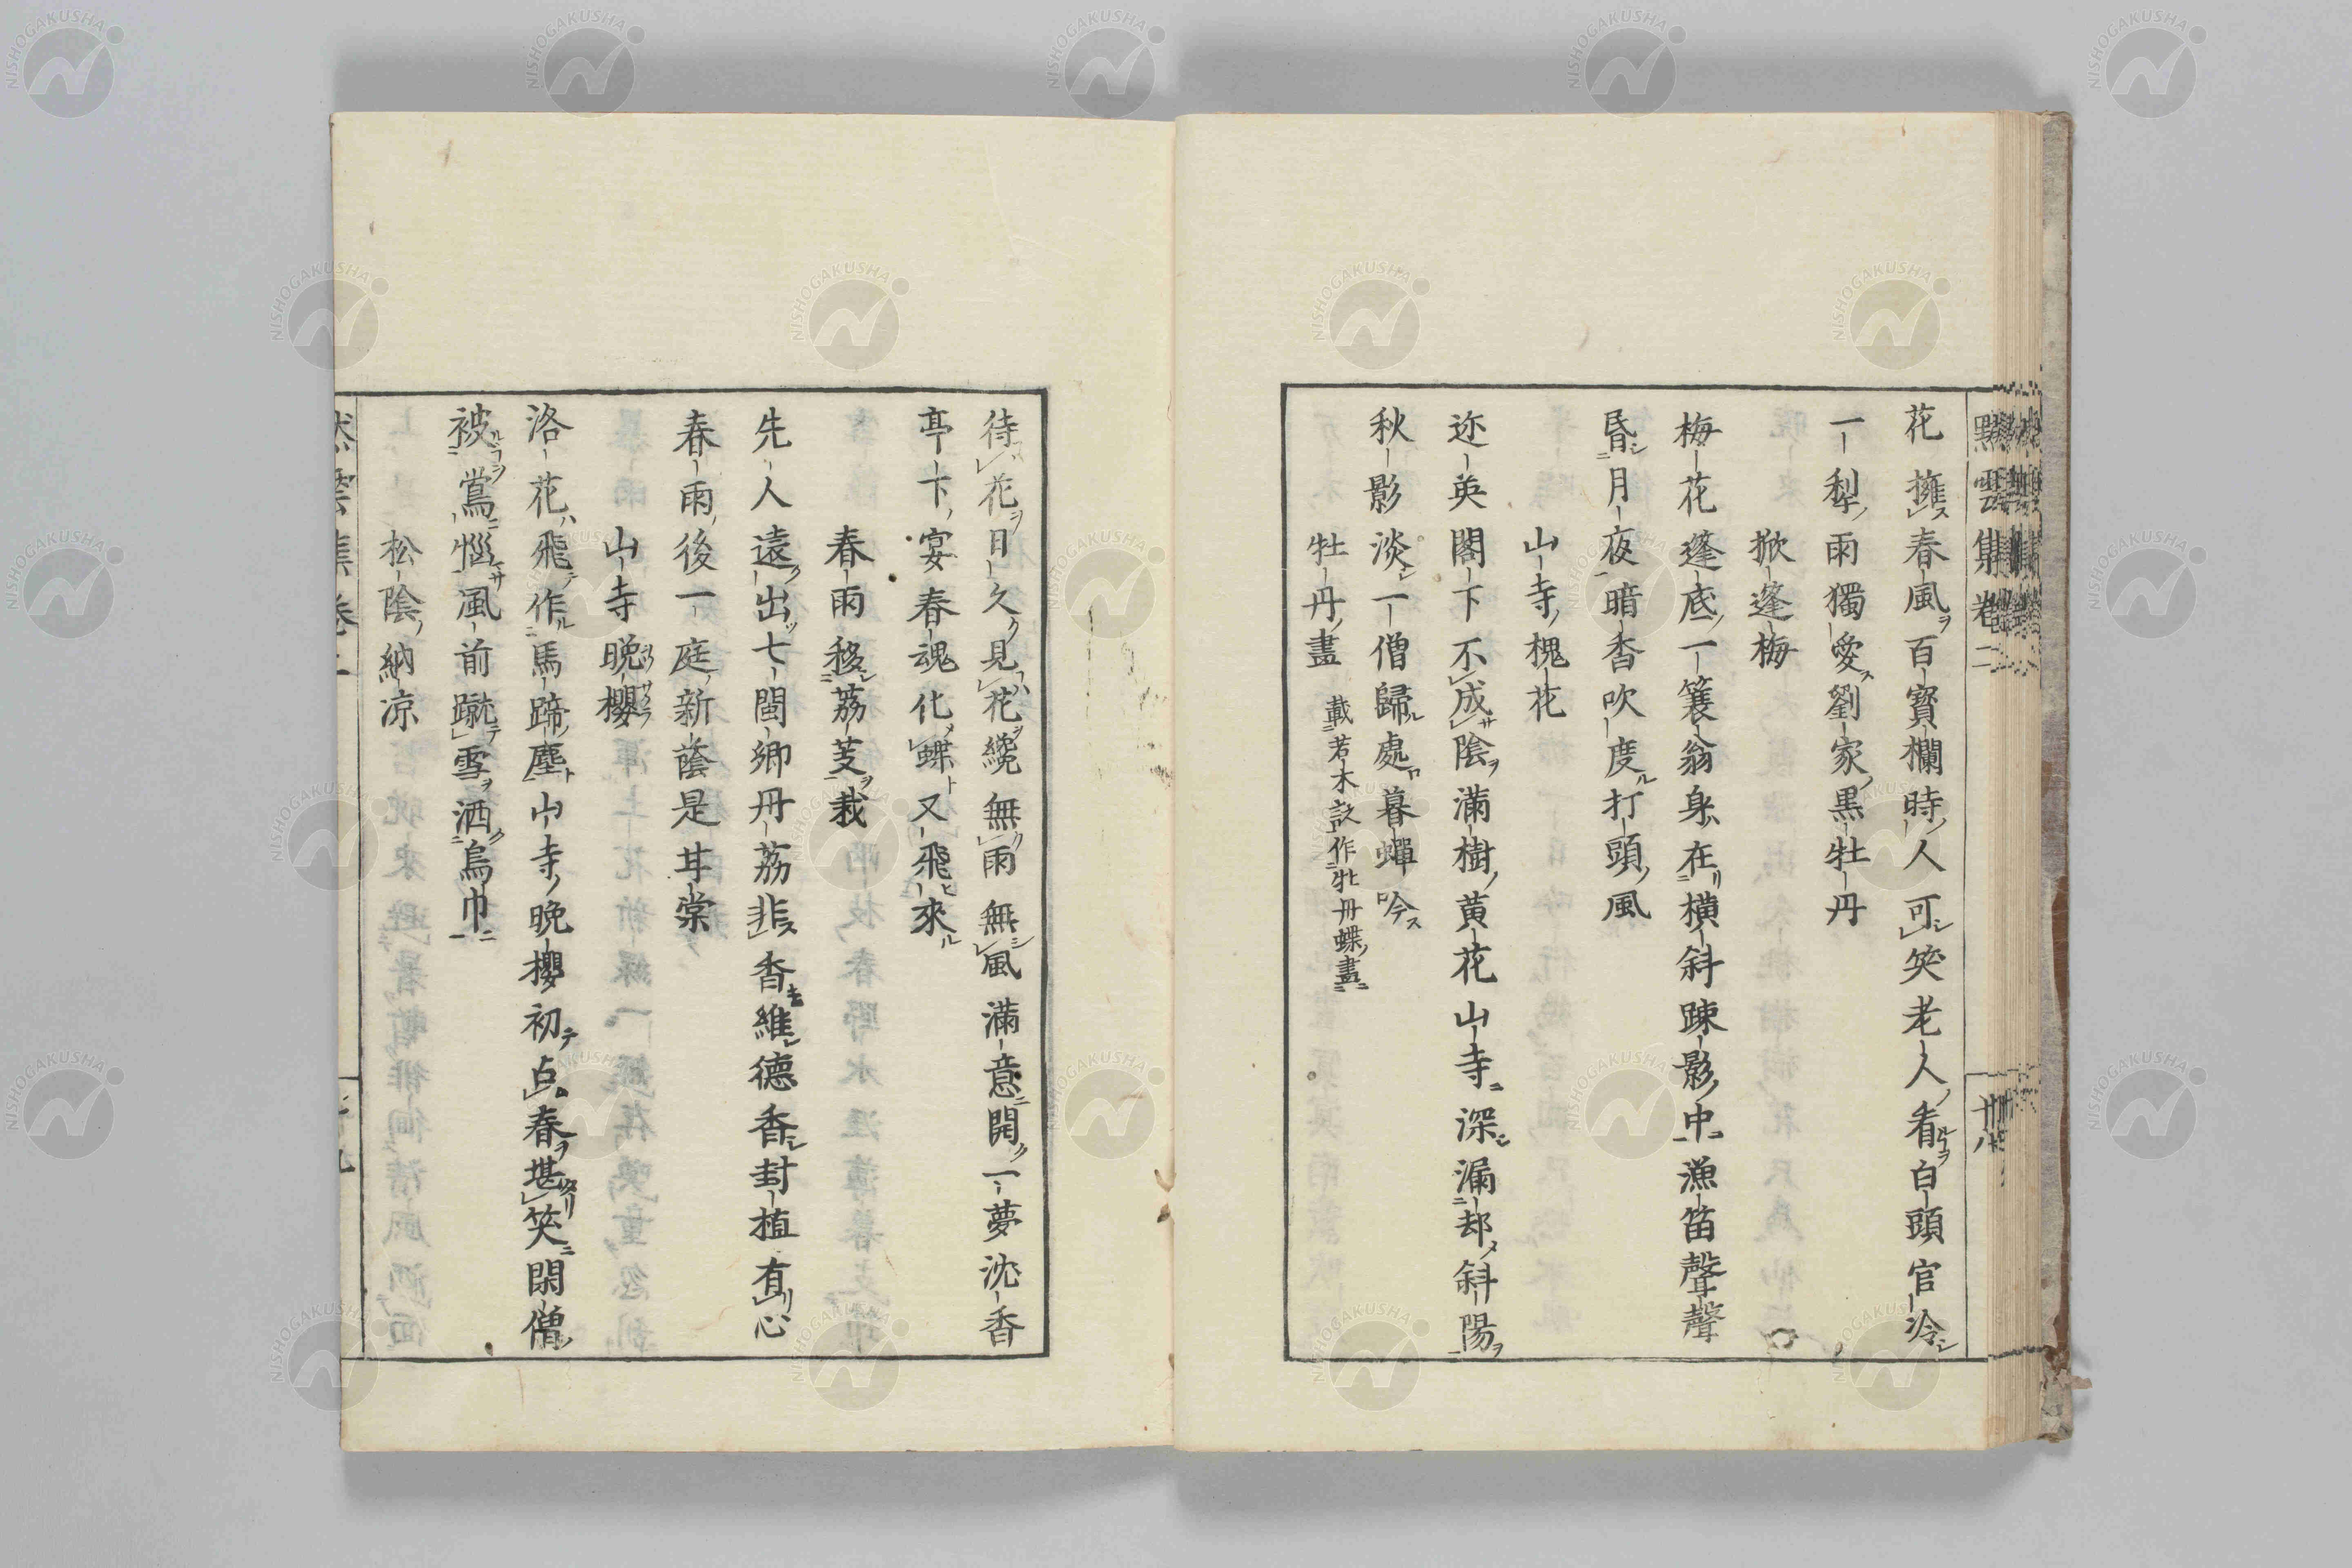 花擁春風百寶欄時人可笑老人看白頭官冷
一犁雨獨愛劉家黒牡丹
掀蓬梅
梅花蓬底一簑翁身在横斜踈影中漁笛聲聲
昏月夜暗香吹度打頭風
山寺槐花
迩英閣下不成陰滿樹黄花山寺深漏却斜陽
秋影淡一僧歸處暮蟬吟
牡丹畫 載若木訳作牡丹蝶畫
待花日久見花纔無雨無風滿意開一夢沈香
亭下宴春魂化蝶又飛來
春雨移荔芰栽
先人遠出七閩卿丹荔非香維德香封植有心
春雨後一庭新蔭是甘棠
山寺晚櫻
洛花飛作馬蹄塵山寺晚櫻初占春堪笑閑僧
被鶯惱風前蹴雪洒烏巾
松陰納凉
NISHOGAKUSHA